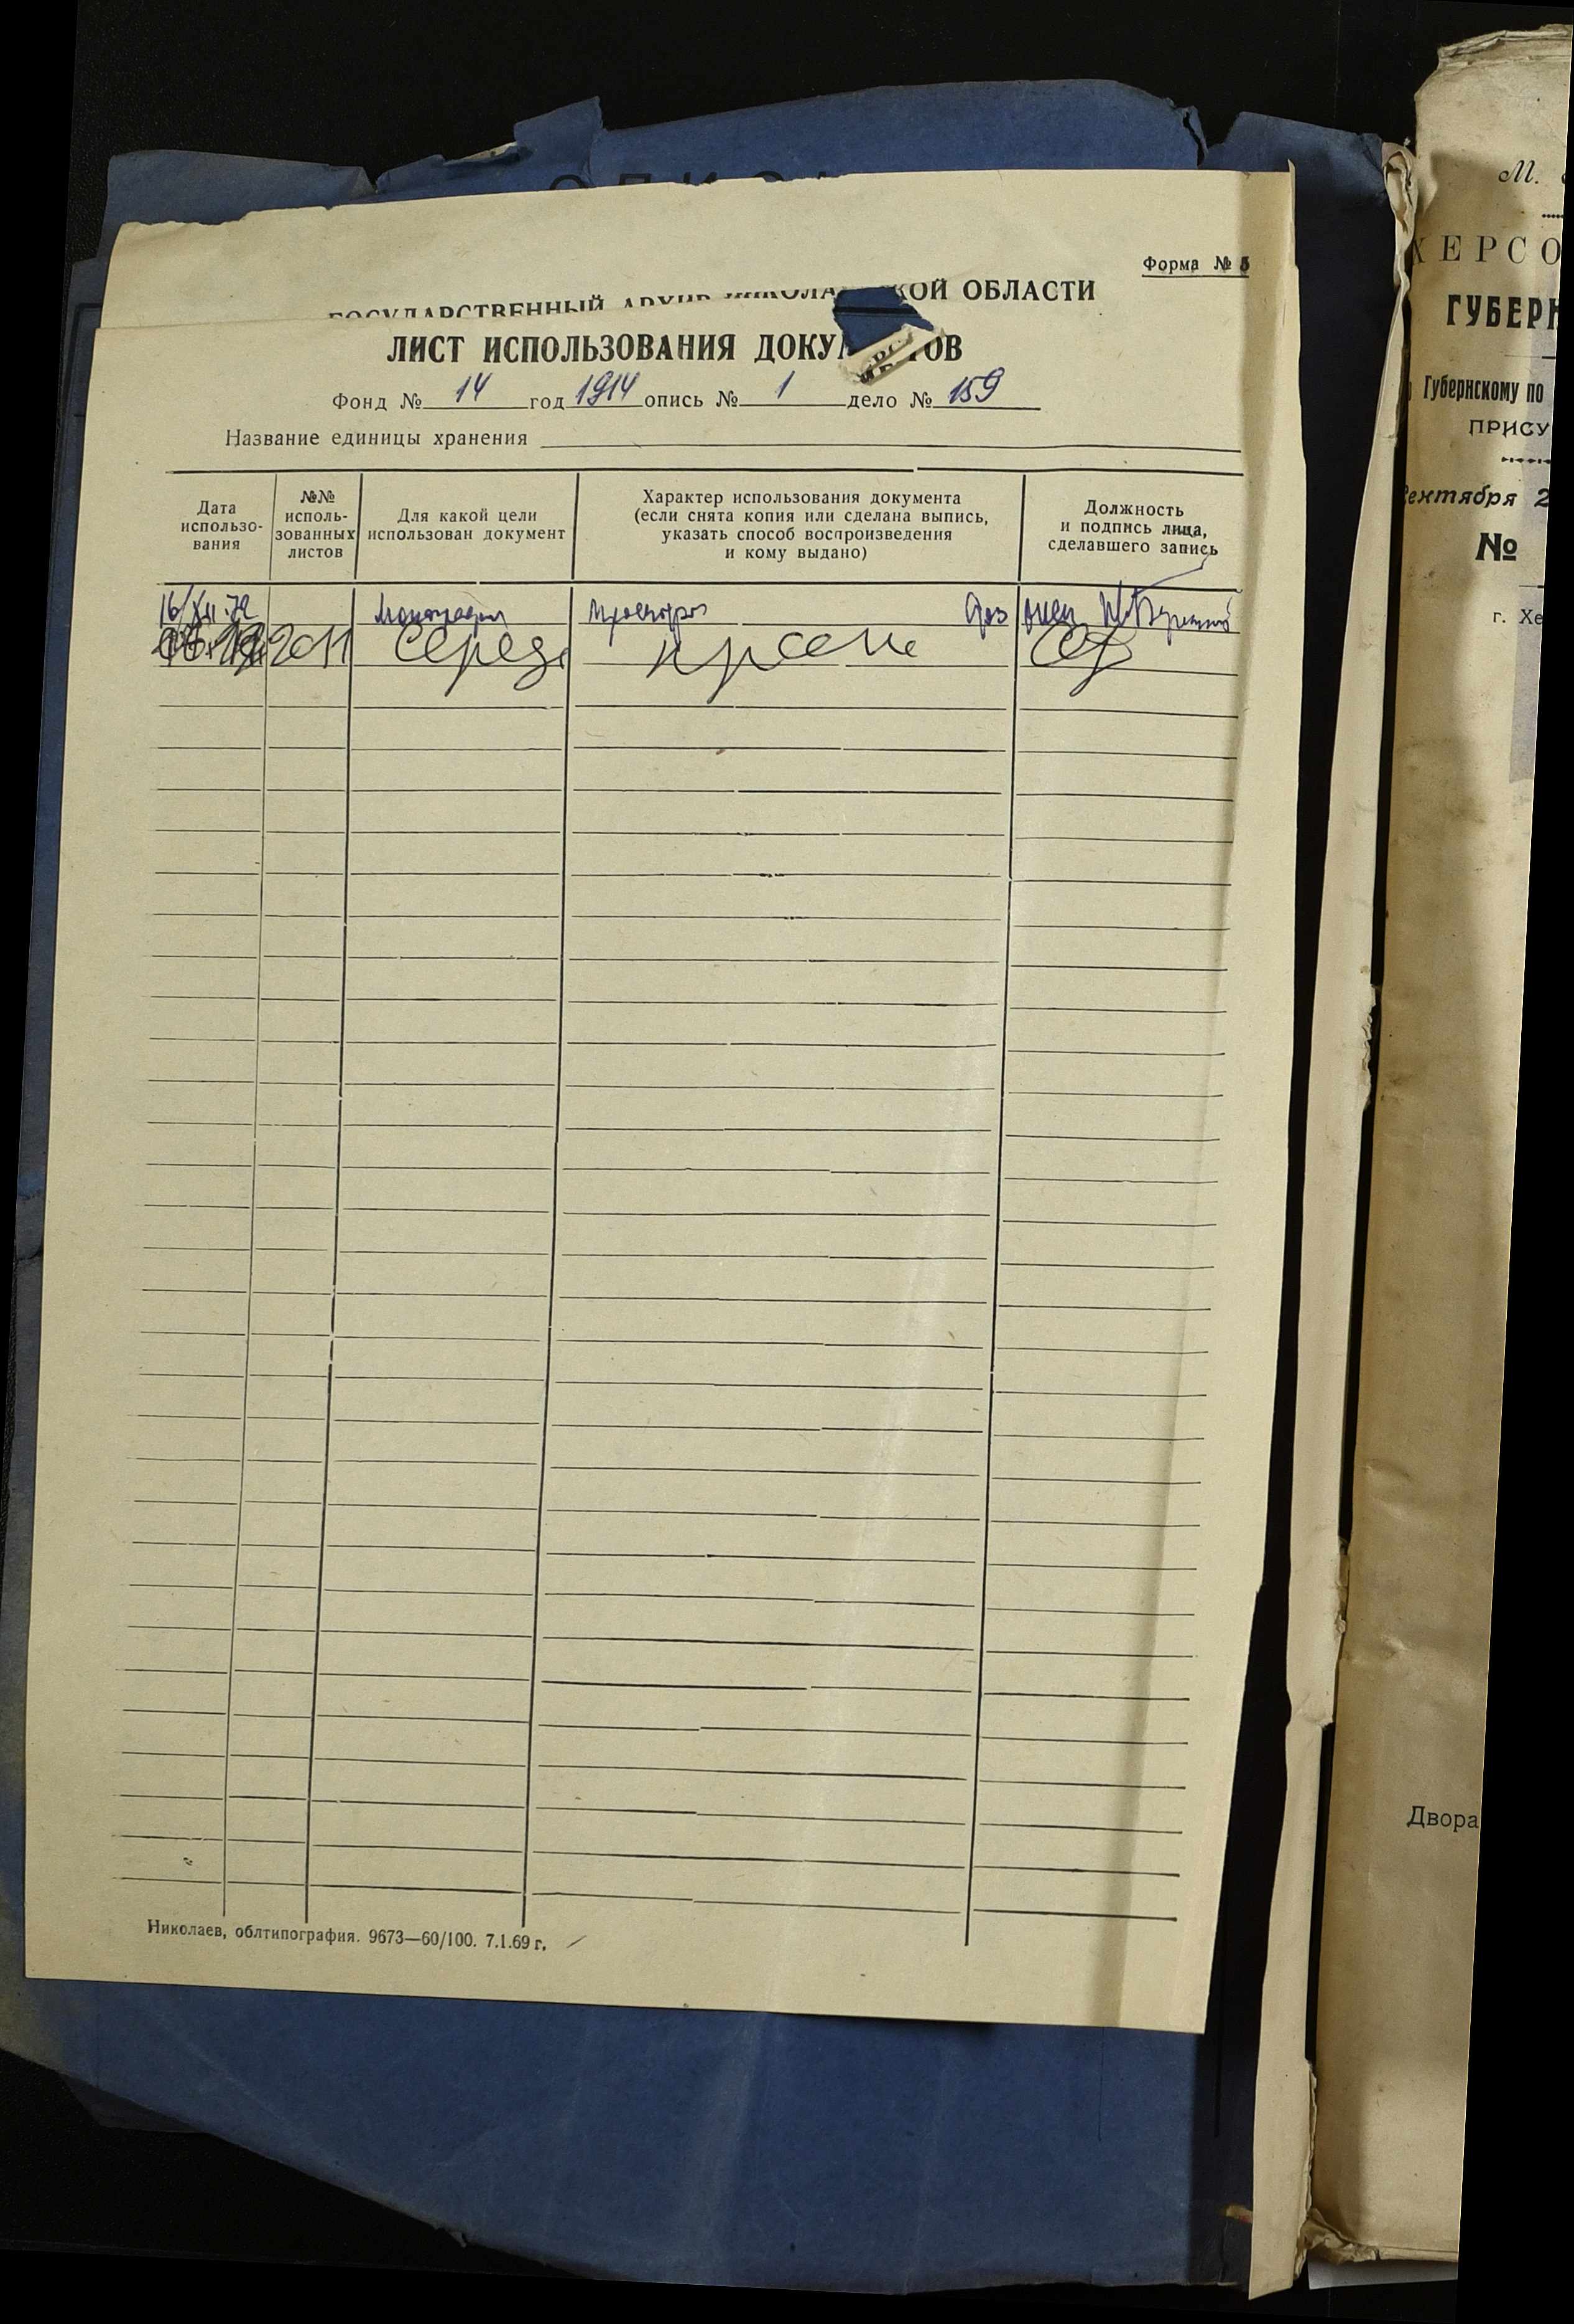 ОПИСЬ
Форма № 5
ГОСУДАРСТВЕННЫЙ АРХИВ НИКОЛАЕВСКОЙ ОБЛАСТИ
ЛИСТ ИСПОЛЬЗОВАНИЯ ДОКУМ ТОВ
Фонд № 14 год 1914 опись № 1 дело № 159
Название единицы хранения
Дата
использо-
вания
№№
исполь-
зованных
листов
Для какой цели
использован документ
Характер использования документа
(если снята копия или сделана выпись,
указать способ воспроизведения
и кому выдано)
Должность
и подпись лица,
сделавшего запись
16/XII.72 Монография просмотр
2011
Николаев, облтипография. 9673—60/100. 7.1.69 г.
М.
ХЕРСО
ГУБЕРН
Губернскому по
ПРИСУ
Сентября 2
№
г. Хе
Двора